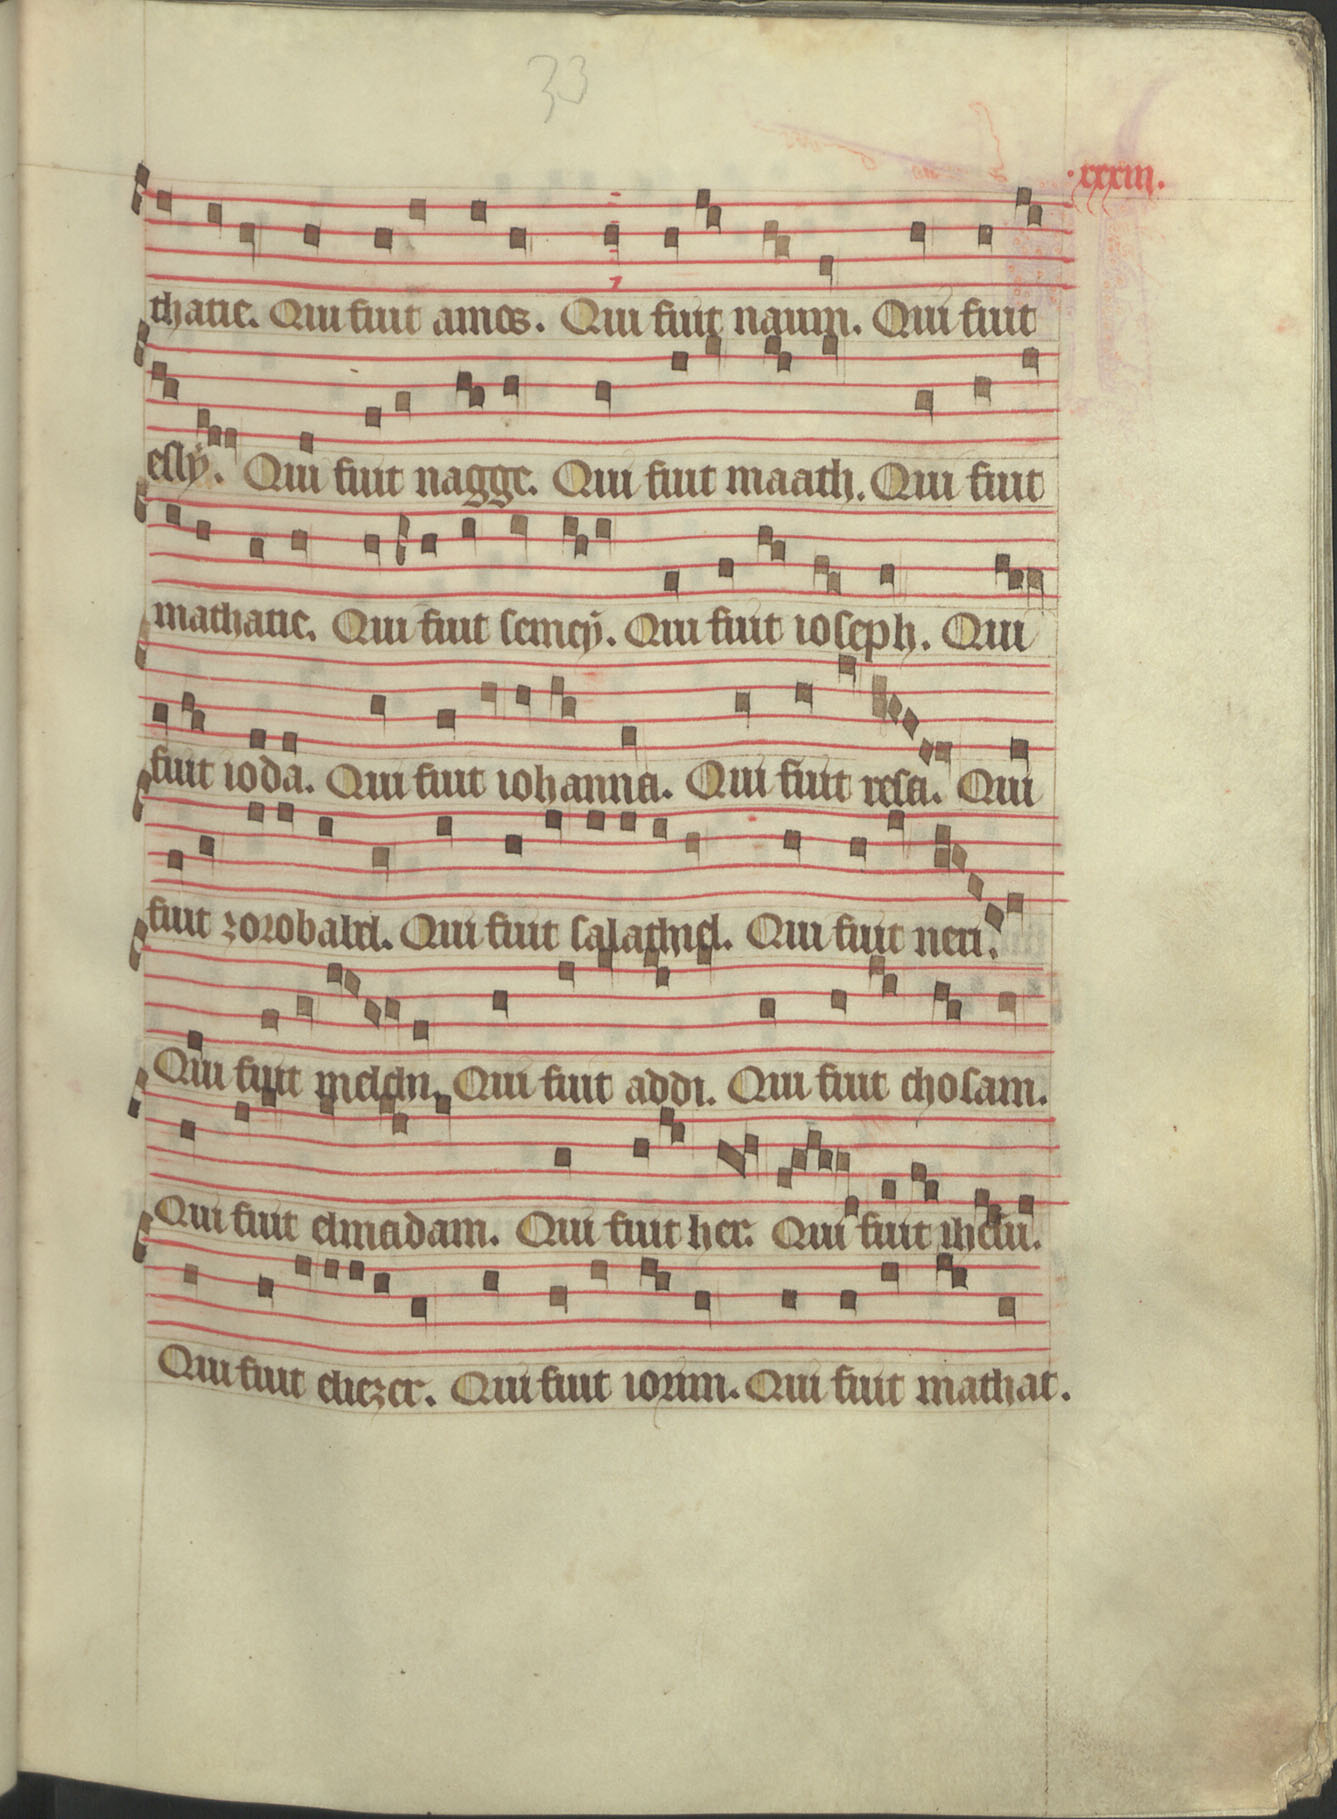 33
·xxxiii·
thatie. Qui fuit amos. Qui fuit naum. Qui fuit
esly. Qui fuit nagge. Qui fuit maath. Qui fuit
mathatie. Qui fuit semeÿ. Qui fuit ioseph. Qui
fuit ioda. Qui fuit iohanna. Qui fuit resa. Qui
fuit zorobabel. Qui fuit salathiel. Qui fuit neri.
Qui fuit melchi. Qui fuit addi. Qui fuit chosam.
Qui fuit elmadam. Qui fuit her. Qui fuit ihesu.
Qui fuit eliezer. Qui fuit iorim. Qui fuit mathat.